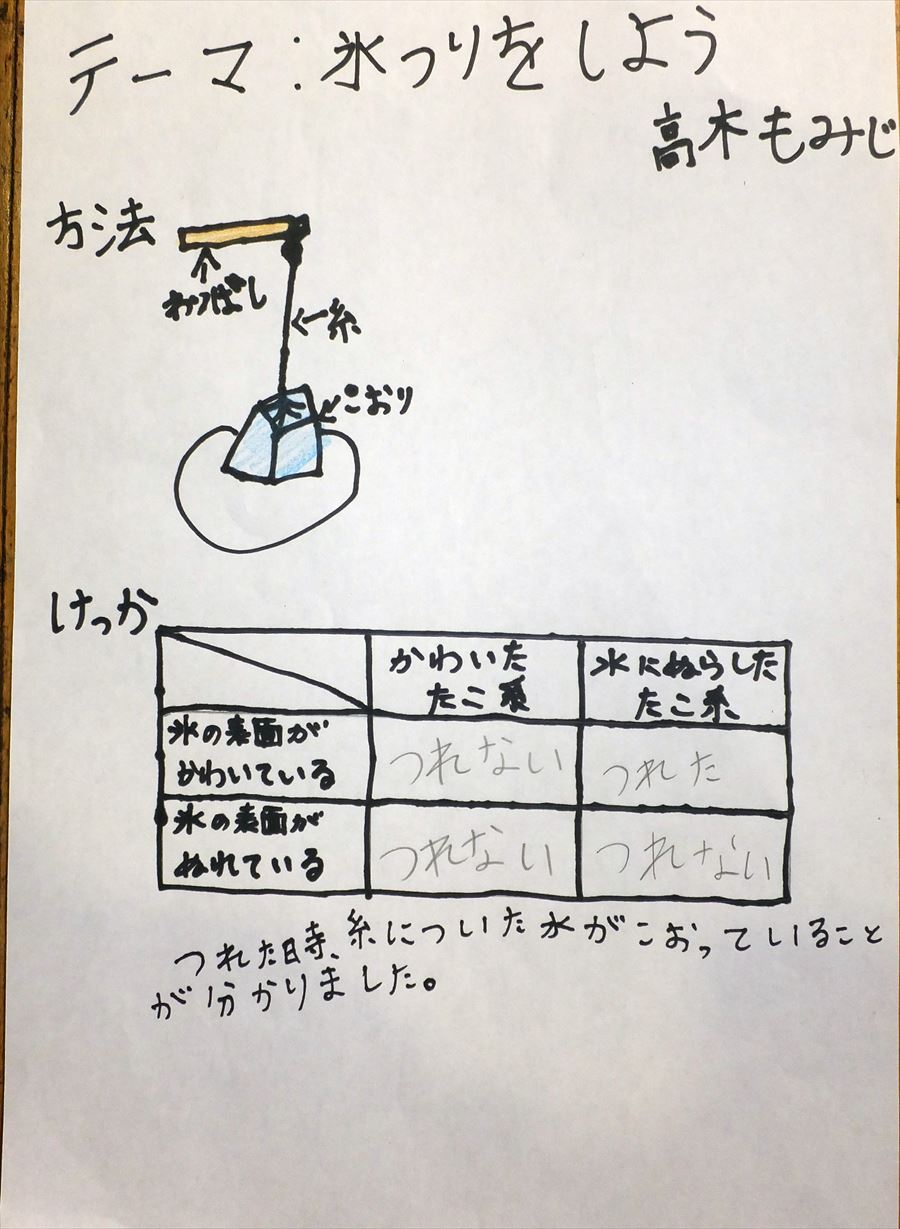 テーマ:氷つりをしよう
高木もみじ
方法
わりばし
糸
こおり
けっか
かわいた
たこ糸
水にぬらした
たこ糸
氷の表面が
かわいている
つれない
つれた
氷の表面が
ぬれている
つれない
つれない
つれた時、糸についた水がこおっていること
が分かりました。